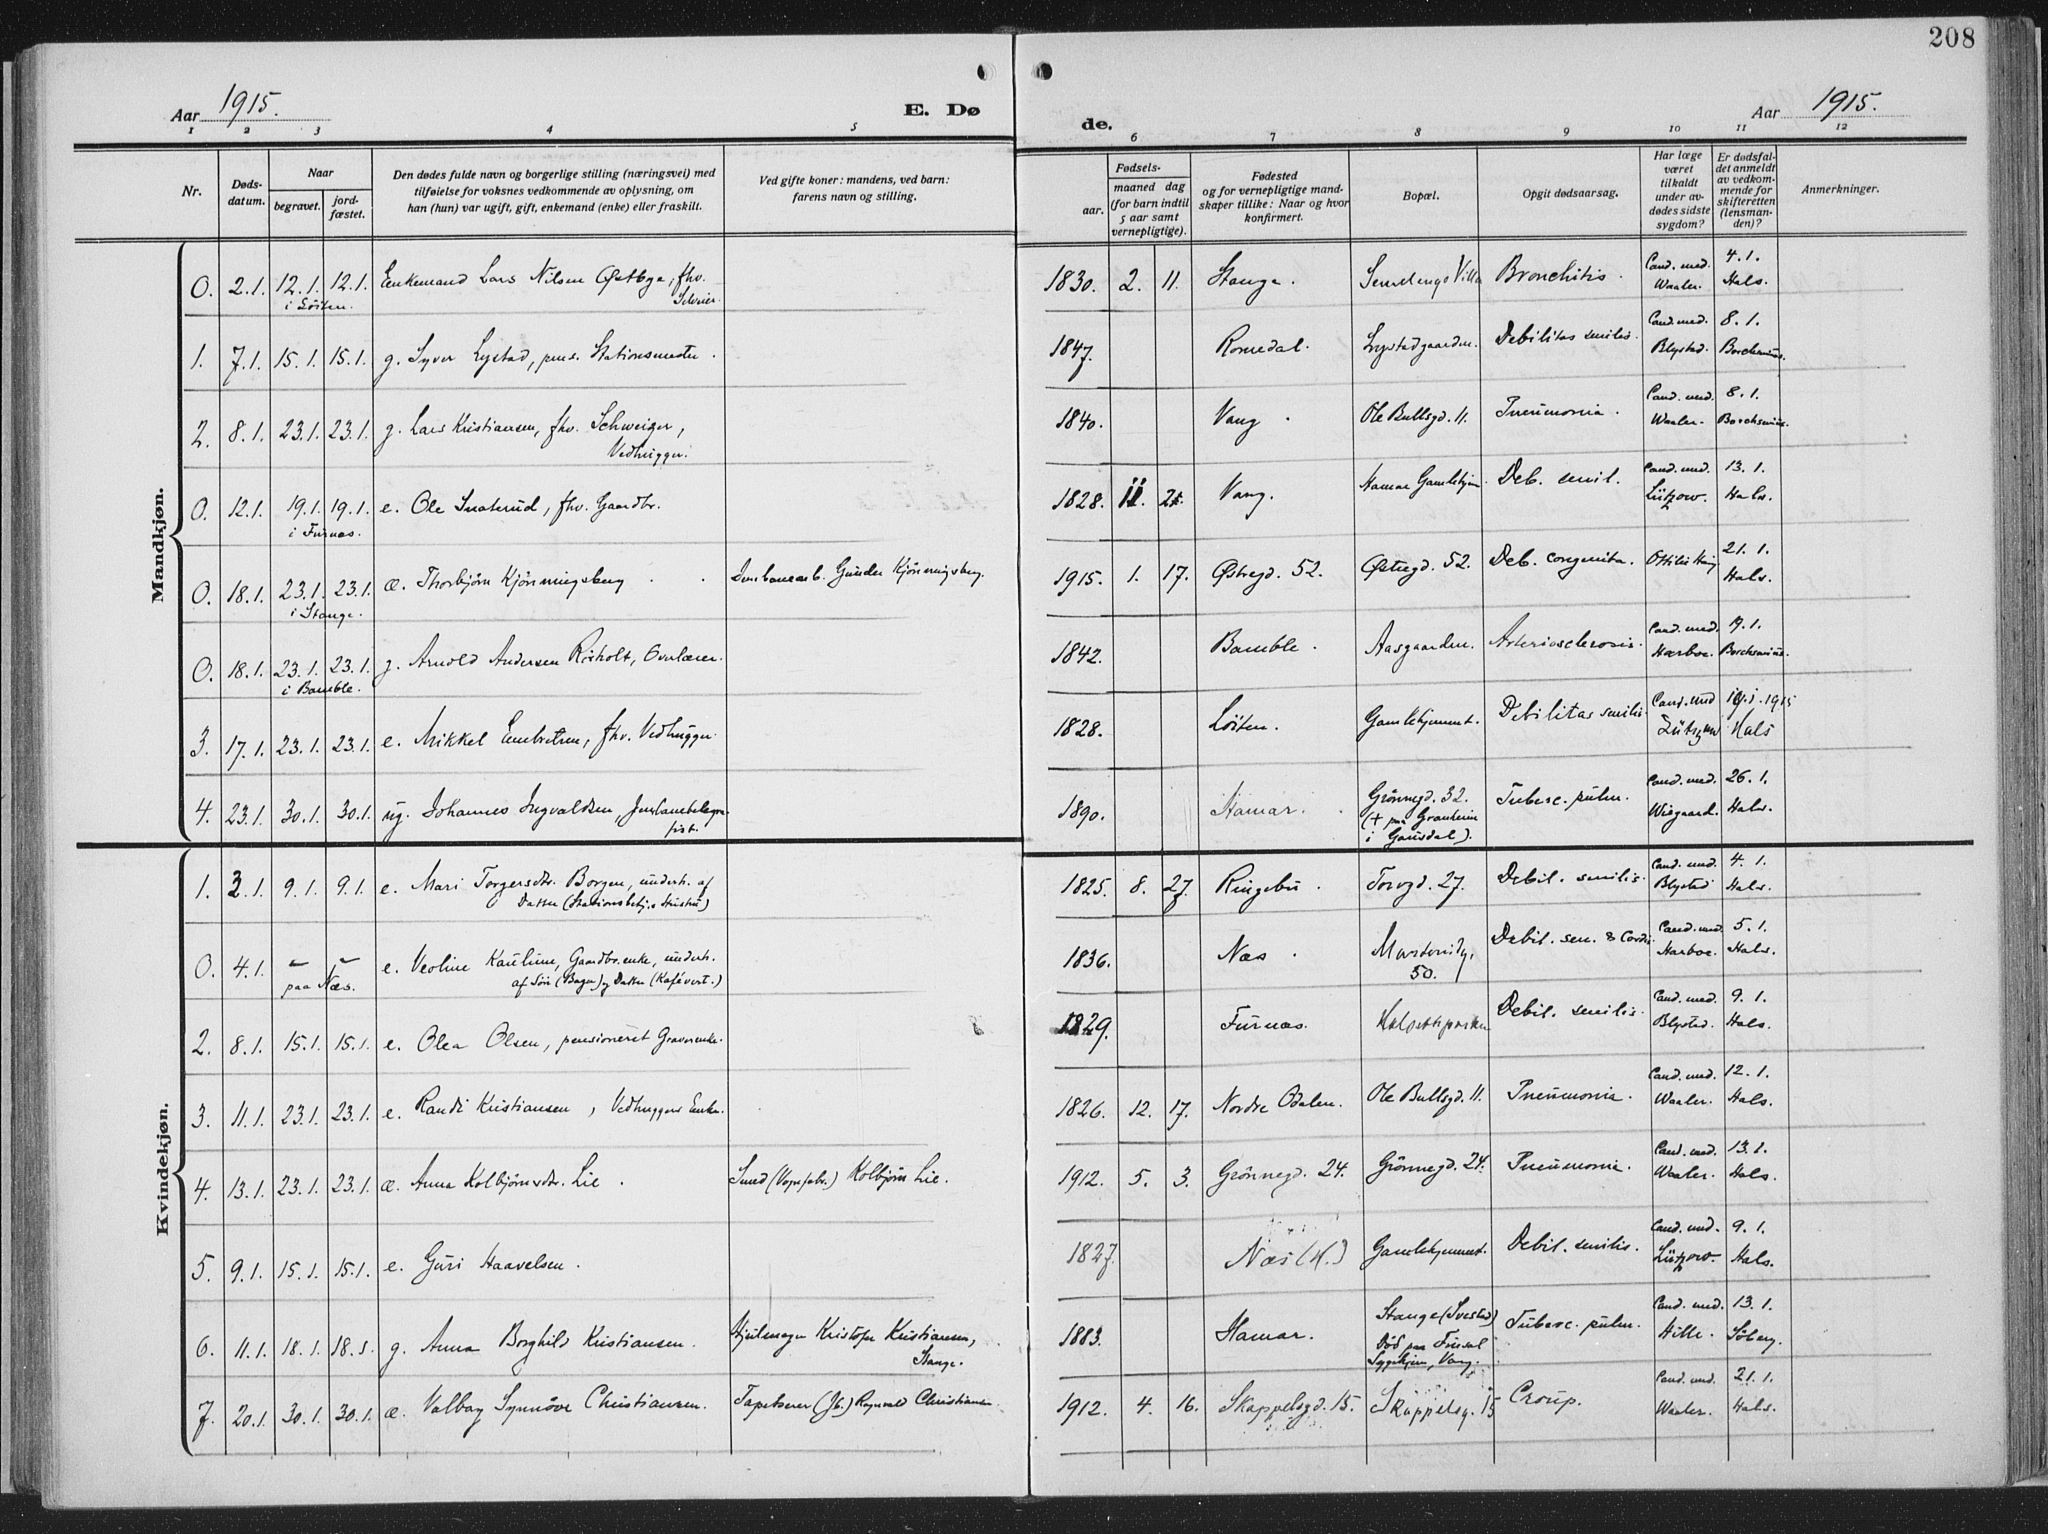 208
Aar 1915.
E. Dø
de.
Aar 1915.
1 2 3 4 5 6 7 8 9 10 11 12
Nr.
Døds-
datum.
Naar
begravet.
jord-
fæstet.
Den dødes fulde navn og borgerlige stilling (næringsvei) med
tilføielse for voksnes vedkommende av oplysning, om
han (hun) var ugift, gift, enkemand (enke) eller fraskilt.
Ved gifte koner: mandens, ved barn:
farens navn og stilling.
Fødsels-
aar.
maaned dag
(for barn indtil
5 aar samt
vernepligtige).
Fødested
og for vernepligtige mand-
skaper tillike: Naar og hvor
konfirmert.
Bopæl.
Opgit dødsaarsag.
Har læge
været
tilkaldt
under av-
dødes sidste
sygdom?
Er dødsfal-
det anmeldt
av vedkom-
mende for
skifteretten
(lensman-
den)?
Anmerkninger.
Mandkjøn.
0. 2.1. 12.1. 12.1. Enkemand Lars Nilsen Østbye, fhv. 1830. 2. 11. Stange. Bronchitis. Cand. med. 4.1.
i Löiten. Waaler. Hals.
1. 7.1. 15.1. 15.1. g. Syver Lystad, pens. Stationsmester. 1847. Romedal. Lystadgaarden. Debilitas senilis. Cand. med. 8.1.
Blystad. Borchsenius.
2. 8.1. 23.1. 23.1. g. Lars Kristiansen, fhv. Schweizer, 1840. Vang. Ole Bullsgd. 11. Pneumonia. Cand. med. 8.1.
Vedhugger. Waaler. Borchsenius.
0. 12.1. 19.1. 19.1. e. Ole Snaterud, fhv. Gaardbr. 1828. 11. Vang. Hamar Gamlehjem. Deb. senil. Cand. med. 13.1.
i Furnæs. Lützow. Hals.
0. 18.1. 23.1. 23.1. æ. Thorbjørn Kjönningsberg. Jernbanearb. Gunder Kjönningsberg. 1915. 1. 17. Østregd. 52. Østregd. 52. Deb. congenita. Ottilie Haug 21.1.
i Stange. Hals.
0. 18.1. 23.1. 23.1. g. Arnold Andersen Riisholt, Overlærer. 1842. Bamble. Aasgaarden. Arteriosclerosis. Cand. med.
i Bamble. Harboe. Borchsenius.
3. 17.1. 23.1. 23.1. e. Mikkel Embretsen, fhv. Vedhugger. 1828. Löiten. Gamlehjemmet. Debilitas senilis. Cand. med 19.1.1915
Lützow Hals
4. 23.1. 30.1. 30.1. ug. Johannes Ingvaldsen, Jernbanetelegra- 1890. Hamar. Grönnegd. 32. Tuberc. pulm. Cand. med. 26.1.
fist. (+ paa Granheim Wisgaard. Hals.
i Gausdal).
Kvindekjøn.
1. 2.1. 9.1. 9.1. e. Mari Torgersdtr. Borgen, underh. af 1825. 8. 27. Ringebu. Torvgd. 27. Debil. senilis. Cand. med. 4.1.
Datter (Stationsbetj.s Hustru) Blystad Hals.
0. 4.1. – – e. Veoline Kaulum, Gaardbr.enke, underh. 1836. Næs. Debil. sen. & Cordis Cand. med. 5.1.
paa Næs. af Sön (Bager) og Datter (Kafévert.) 50. Harboe. Hals.
2. 8.1. 15.1. 15.1. e. Olea Olsen, pensioneret Graverenke. 1829. Furnæs. Debil. senilis. Cand. med. 9.1.
Blystad. Hals.
3. 11.1. 23.1. 23.1. e. Randi Kristiansen, Vedhuggers Enke. 1826. 12. 17. Nordre Odalen. Ole Bullsgd. 11. Pneumonia. Cand. med. 12.1.
Waaler. Hals.
4. 13.1. 23.1. 23.1. æ. Anna Kolbjörnsdtr. Lie. Smed (Vognfabr.) Kolbjörn Lie. 1912. 5. 3. Grönnegd. 24. Grönnegd. 24. Pneumonia. Cand. med. 13.1.
Waaler. Hals.
5. 9.1. 15.1. 15.1. e. Guri Haavelsen. 1827. Næs (H.) Gamlehjemmet. Debil. senilis. Cand. med. 9.1.
Lützow. Hals.
6. 11.1. 18.1. 18.1. g. Anna Borghild Kristiansen. Hjulmager Kristofer Kristiansen, 1883. Hamar. Stange (Svestad) Tuberc. pulm. Cand. med. 13.1.
Stange. Död paa Finsal Hille. Söberg.
Sygehjem, Vang.
7. 20.1. 30.1. 30.1. æ. Valborg Synnöve Christiansen. Tapetserer (Jb.) Ragnvald Christiansen. 1912. 4. 16. Skappelsgd. 15. Skappelsg. 15 Croup. Cand. med. 21.1.
Waaler. Hals.